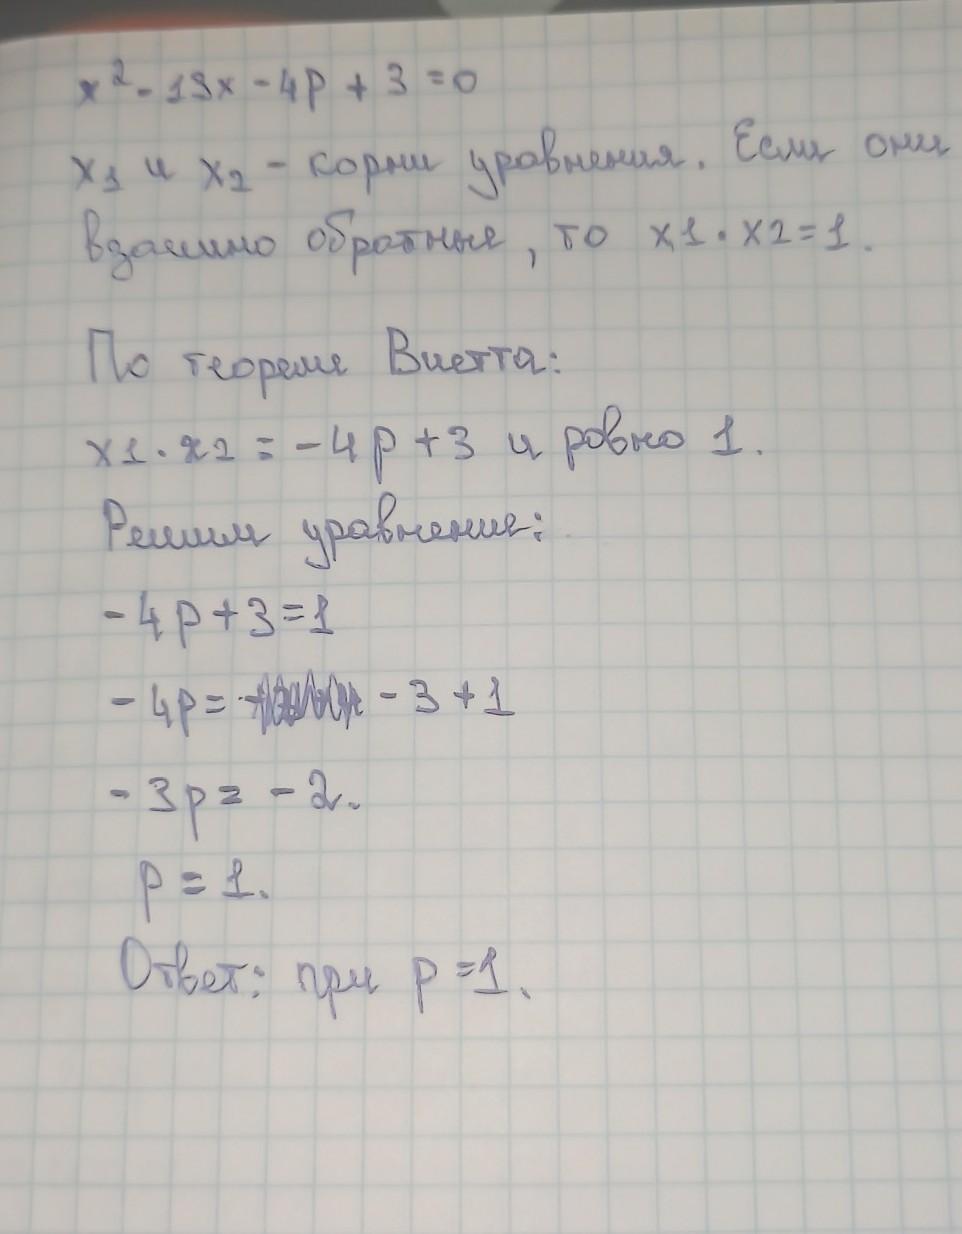 x² - 13x - 4p + 3 = 0
x₁ и x₂ - корни уравнения. Если они
взаимно обратные, то x1 · x2 = 1.
По теореме Виетта:
x1 · x2 = -4p + 3 и ровно 1.
Решим уравнение:
-4p + 3 = 1
-4p = -3 + 1
-3p = -2.
p = 1.
Ответ: при p = 1.